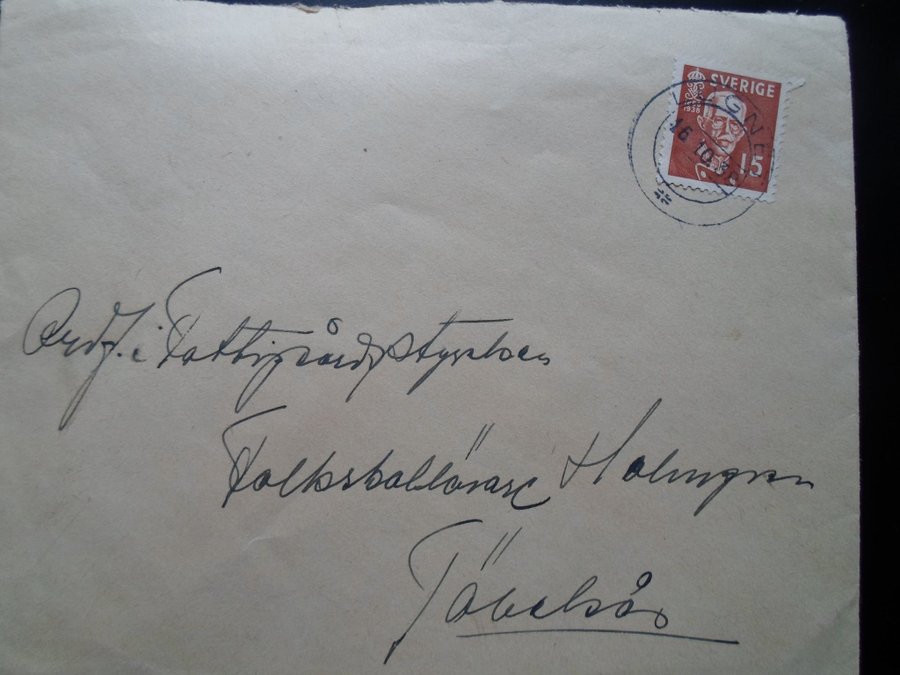 SVERIGE
1938
15
16 10 38
Ordf. i Fattigvårdsstyrelsen
Folkskollärare Holmgren
Tävelsås